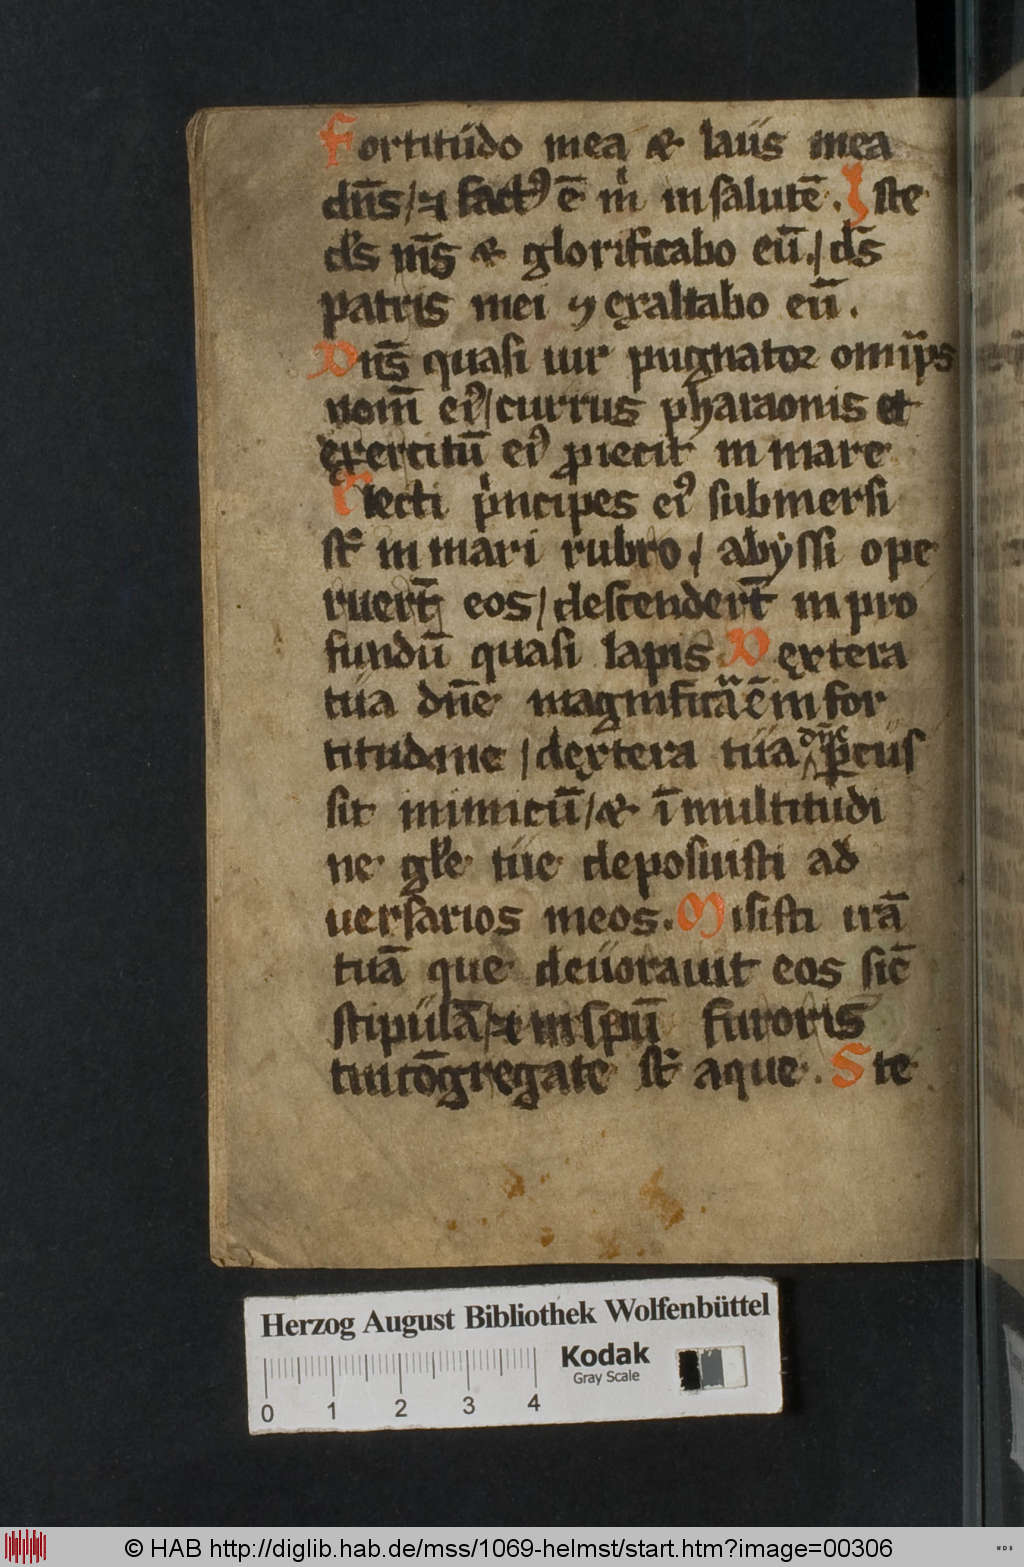 Fortitudo mea & laus mea
dn̄s / ⁊ fact⁹ ē mͥ in salutē. Iste
ds̄ ms̄ & glorificabo eū. / ds̄
patris mei ⁊ exaltabo eū.
Dn̄s quasi uir pugnator omīps
nom̄ ei⁹ / currus pharaonis et
exercitū ei⁹ ꝓiecit in mare
Electi pͥncipes ei⁹ submersi
st̄ in mari rubro / abyssi ope
ruert̄ eos / descendert̄ in pro
fundū quasi lapis Dextera
tua dn̄e magnificāͣ ē in for
titudine / dextera tua dn̄e ꝑcus
sit inimicū / & ī multitudi
ne gl̄e tue deposuisti ad
uersarios meos. Misisti irā
tuā que deuorauit eos sic̄
stipulā / ⁊ in spū furoris
tui cōgregate st̄ aque. Ste
Herzog August Bibliothek Wolfenbüttel
Kodak
Gray Scale
0 1 2 3 4
© HAB http://diglib.hab.de/mss/1069-helmst/start.htm?image=00306